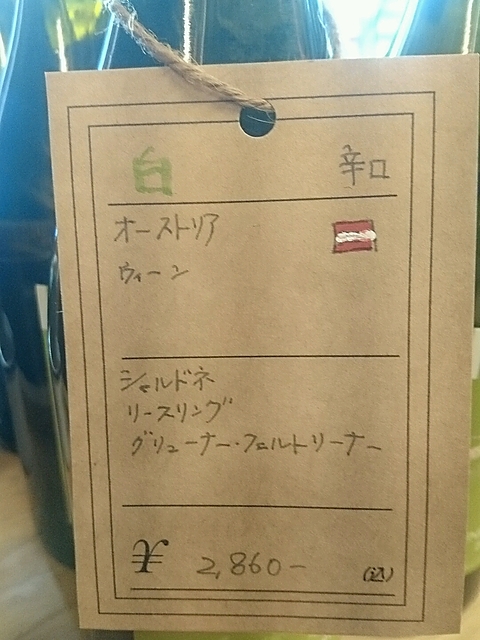 白 辛口
オーストリア
ウィーン
シャルドネ
リースリング
グリューナー・フェルトリーナー
¥ 2,860- (込)